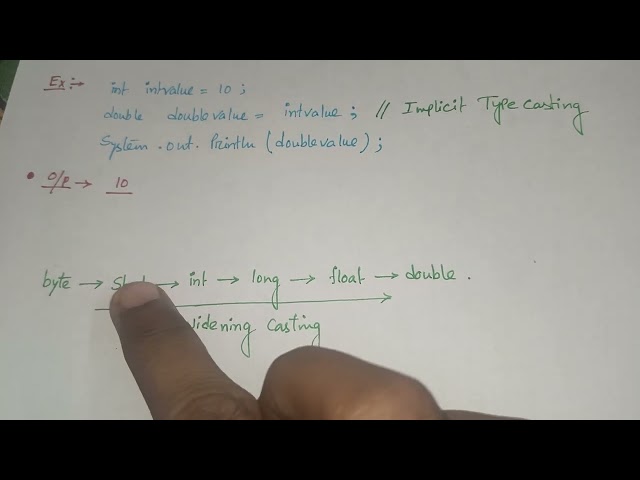 Ex:→ int intvalue = 10 ;
double doublevalue = intvalue ; // Implicit Type casting
System .out. Println (doublevalue) ;
• O/P → 10
byte → → int → long → float → double .
casting